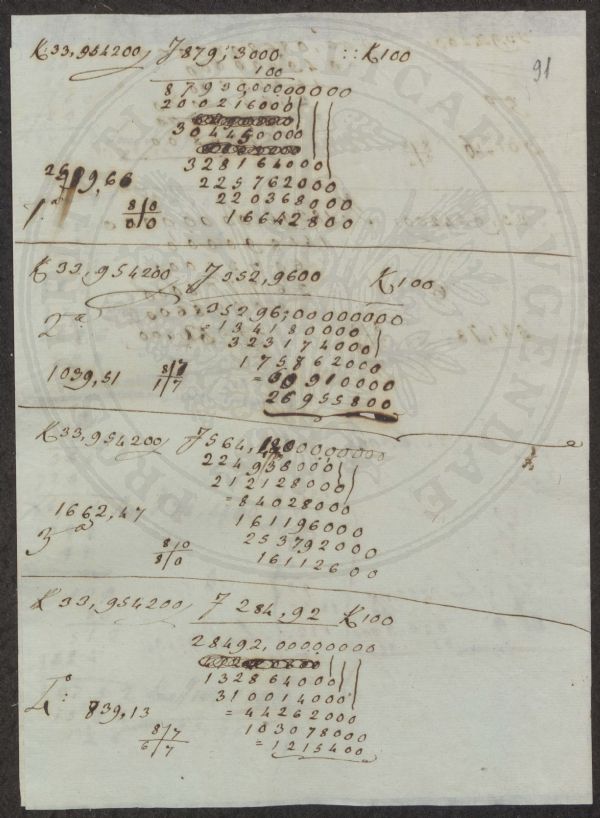 91
K:33,954200 f 879,3000 :: K100
100
87930,00000000
200216000
304450000
328164000
225762000
220368000
16642800
1.a
8 0
0 0
K 33,954200 f 352,9600 K100
35296,00000000
= 134180000
323174000
175862000
26955800
2.a
1039,51
8 7
1 7
K33,954200
224938000
212128000
= 84028000
161196000
253792000
1611260 0
1662,47
3a
8 0
8 0
K 33,954200 f 284,92 K100
28492,00000000
132864000
310014000
= 44262000
103078000
= 1215400
839,13
8 7
6 7